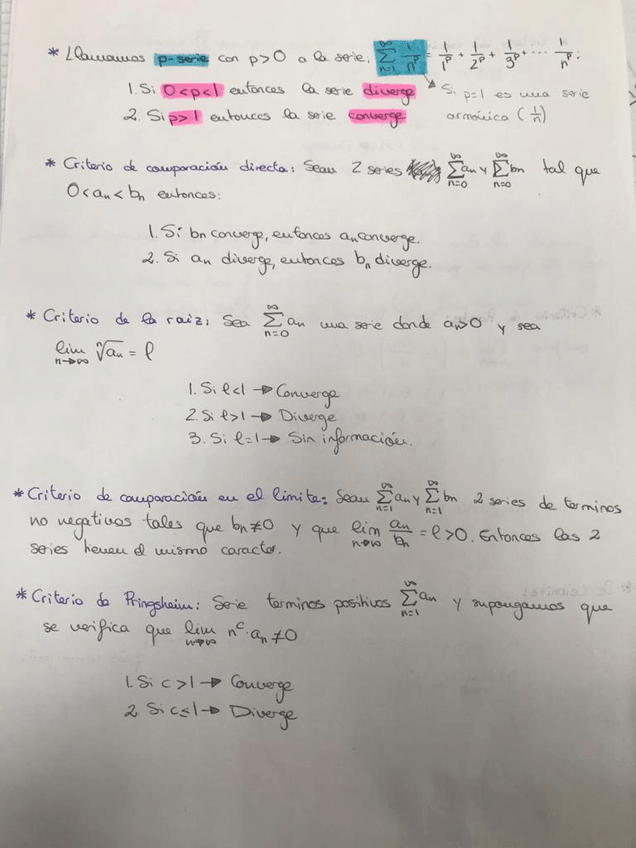 * Llamamos p-serie con p>0 a la serie: ∑_{n=1}^{∞} 1/n^p = 1/1^p + 1/2^p + 1/3^p + ... 1/n^p:
1. Si 0<p<1 entonces la serie diverge
Si p=1 es una serie armónica (1/n)
2. Si p>1 entonces la serie converge
* Criterio de comparación directa: Sean 2 series ∑_{n=0}^{∞} an y ∑_{n=0}^{∞} bn tal que
0<an<bn entonces:
1. Si bn converge, entonces an converge.
2. Si an diverge, entonces bn diverge.
* Criterio de la raiz: Sea ∑_{n=0}^{∞} an una serie donde an>0 y sea
lim_{n→∞} ⁿ√an = l
1. Si l<1 → Converge
2. Si l>1 → Diverge
3. Si l=1 → Sin información.
* Criterio de comparación en el limite: Sean ∑_{n=1}^{∞} an y ∑_{n=1}^{∞} bn 2 series de terminos
no negativos tales que bn≠0 y que lim_{n→∞} an/bn = l>0. Entonces las 2
series tienen el mismo caracter.
* Criterio de Pringsheim: Serie terminos positivos ∑_{n=1}^{∞} an y supongamos que
se verifica que lim_{n→∞} n^c · an ≠0
1. Si c>1 → Converge
2. Si c≤1 → Diverge